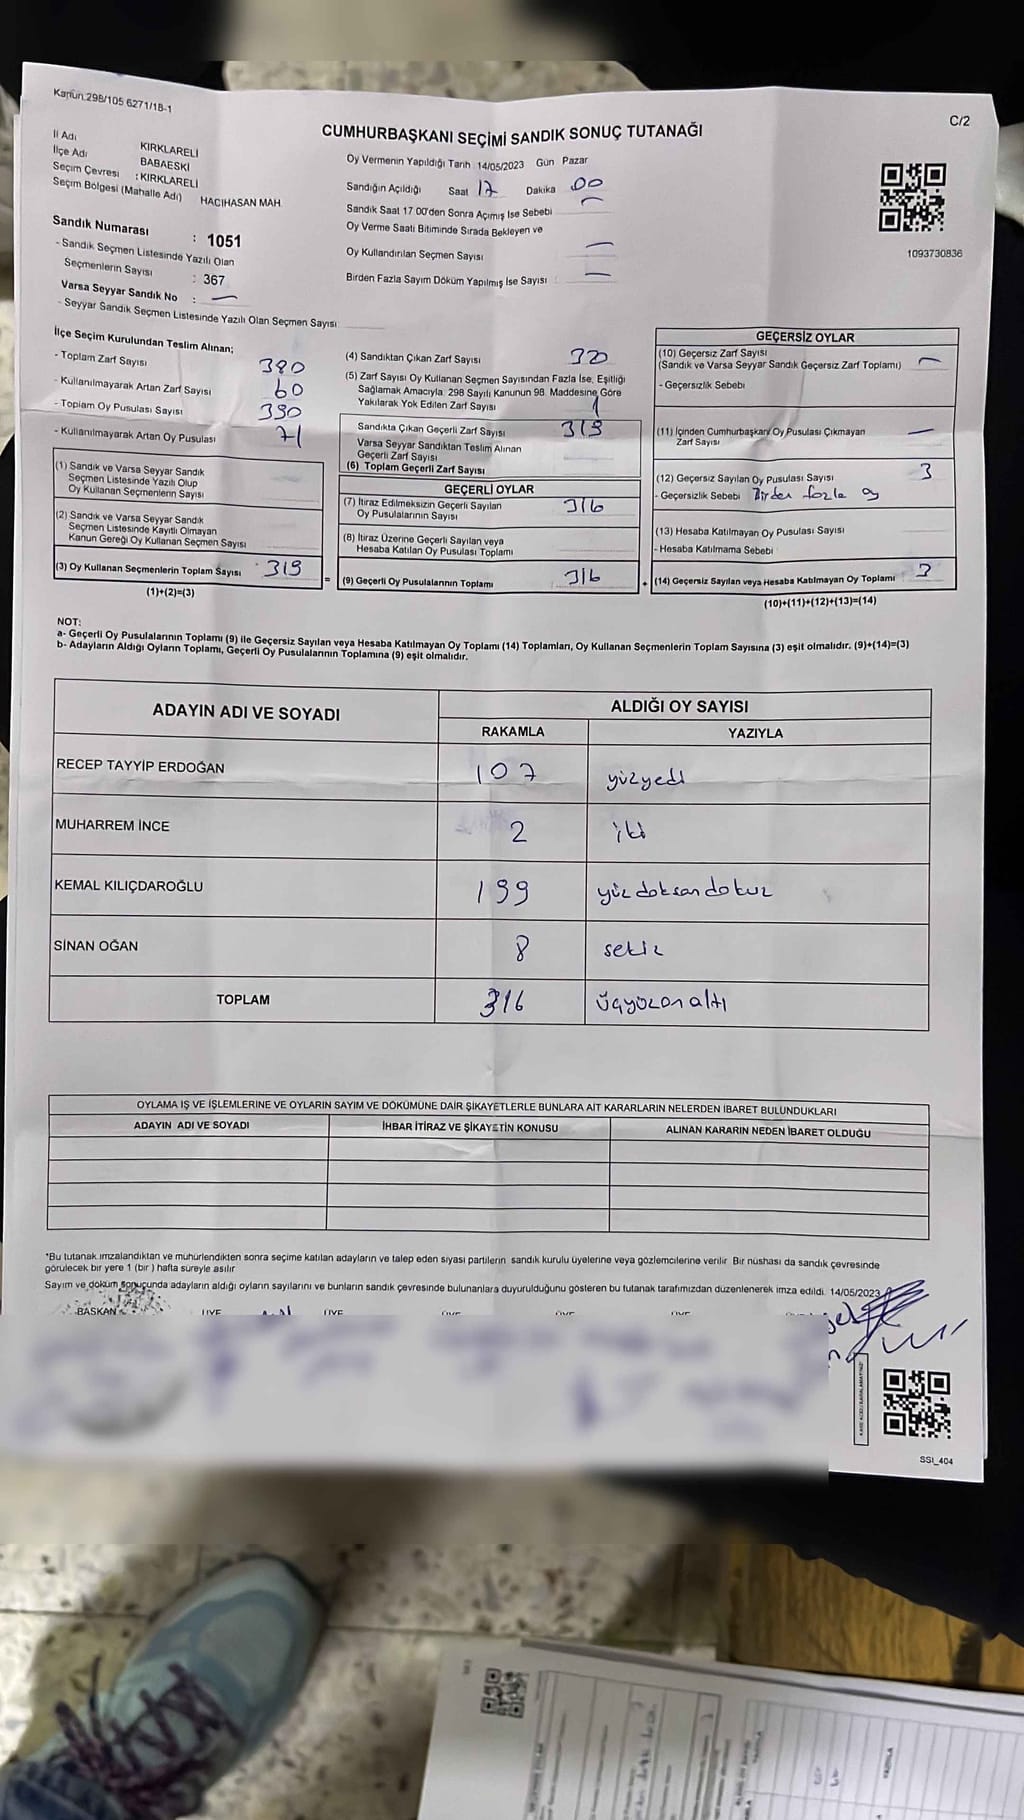 Kanun.298/105 6271/18-1
C/2
CUMHURBAŞKANI SEÇİMİ SANDIK SONUÇ TUTANAĞI
İl Adı KIRKLARELİ
İlçe Adı BABAESKİ
Seçim Çevresi : KIRKLARELİ
Seçim Bölgesi (Mahalle Adı) HACIHASAN MAH.
Oy Vermenin Yapıldığı Tarih 14/05/2023 Gün Pazar
Sandığın Açıldığı Saat 17 Dakika 00
Sandık Saat 17 00'den Sonra Açımış İse Sebebi —
Oy Verme Saati Bitiminde Sırada Bekleyen ve
Oy Kullandırılan Seçmen Sayısı —
Birden Fazla Sayım Döküm Yapılmış İse Sayısı : —
1093730836
Sandık Numarası : 1051
- Sandık Seçmen Listesinde Yazılı Olan
Seçmenlerin Sayısı : 367
Varsa Seyyar Sandık No : —
- Seyyar Sandık Seçmen Listesinde Yazılı Olan Seçmen Sayısı
İlçe Seçim Kurulundan Teslim Alınan;
- Toplam Zarf Sayısı 380
- Kullanılmayarak Artan Zarf Sayısı 60
- Toplam Oy Pusulası Sayısı 390
- Kullanılmayarak Artan Oy Pusulası 71
(1) Sandık ve Varsa Seyyar Sandık
Seçmen Listesinde Yazılı Olup
Oy Kullanan Seçmenlerin Sayısı
(2) Sandık ve Varsa Seyyar Sandık
Seçmen Listesinde Kayıtlı Olmayan
Kanun Gereği Oy Kullanan Seçmen Sayısı
(3) Oy Kullanan Seçmenlerin Toplam Sayısı 319
(1)+(2)=(3)
(4) Sandıktan Çıkan Zarf Sayısı 320
(5) Zarf Sayısı Oy Kullanan Seçmen Sayısından Fazla İse, Eşitliği
Sağlamak Amacıyla. 298 Sayılı Kanunun 98. Maddesine Göre
Yakılarak Yok Edilen Zarf Sayısı 1
Sandıkta Çıkan Geçerli Zarf Sayısı 319
Varsa Seyyar Sandıktan Teslim Alınan
Geçerli Zarf Sayısı
(6) Toplam Geçerli Zarf Sayısı
GEÇERLİ OYLAR
(7) İtiraz Edilmeksizin Geçerli Sayılan
Oy Pusulalarının Sayısı 316
(8) İtiraz Üzerine Geçerli Sayılan veya
Hesaba Katılan Oy Pusulası Toplamı
= (9) Geçerli Oy Pusulalarının Toplamı 316
GEÇERSİZ OYLAR
(10) Geçersiz Zarf Sayısı
(Sandık ve Varsa Seyyar Sandık Geçersiz Zarf Toplamı) —
- Geçersizlik Sebebi
(11) İçinden Cumhurbaşkanı Oy Pusulası Çıkmayan
Zarf Sayısı —
(12) Geçersiz Sayılan Oy Pusulası Sayısı 3
- Geçersizlik Sebebi Birden fazla oy
(13) Hesaba Katılmayan Oy Pusulası Sayısı
- Hesaba Katılmama Sebebi
+ (14) Geçersiz Sayılan veya Hesaba Katılmayan Oy Toplamı 3
(10)+(11)+(12)+(13)=(14)
NOT:
a- Geçerli Oy Pusulalarının Toplamı (9) ile Geçersiz Sayılan veya Hesaba Katılmayan Oy Toplamı (14) Toplamları, Oy Kullanan Seçmenlerin Toplam Sayısına (3) eşit olmalıdır. (9)+(14)=(3)
b- Adayların Aldığı Oyların Toplamı, Geçerli Oy Pusulalarının Toplamına (9) eşit olmalıdır.
ADAYIN ADI VE SOYADI ALDIĞI OY SAYISI
RAKAMLA YAZIYLA
RECEP TAYYİP ERDOĞAN 107 yüzyedi
MUHARREM İNCE 2 iki
KEMAL KILIÇDAROĞLU 199 yüz doksan dokuz
SİNAN OĞAN 8 sekiz
TOPLAM 316 üçyüzonaltı
OYLAMA İŞ VE İŞLEMLERİNE VE OYLARIN SAYIM VE DÖKÜMÜNE DAİR ŞİKAYETLERLE BUNLARA AİT KARARLARIN NELERDEN İBARET BULUNDUKLARI
ADAYIN ADI VE SOYADI İHBAR İTİRAZ VE ŞİKAYETİN KONUSU ALINAN KARARIN NEDEN İBARET OLDUĞU
*Bu tutanak imzalandıktan ve mühürlendikten sonra seçime katılan adayların ve talep eden siyasi partilerin sandık kurulu üyelerine veya gözlemcilerine verilir Bir nüshası da sandık çevresinde
görülecek bir yere 1 (bir) hafta süreyle asılır
Sayım ve döküm sonucunda adayların aldığı oyların sayılarını ve bunların sandık çevresinde bulunanlara duyurulduğunu gösteren bu tutanak tarafımızdan düzenlenerek imza edildi. 14/05/2023
BAŞKAN ÜYE ÜYE ÜYE ÜYE ÜYE
SSI_404